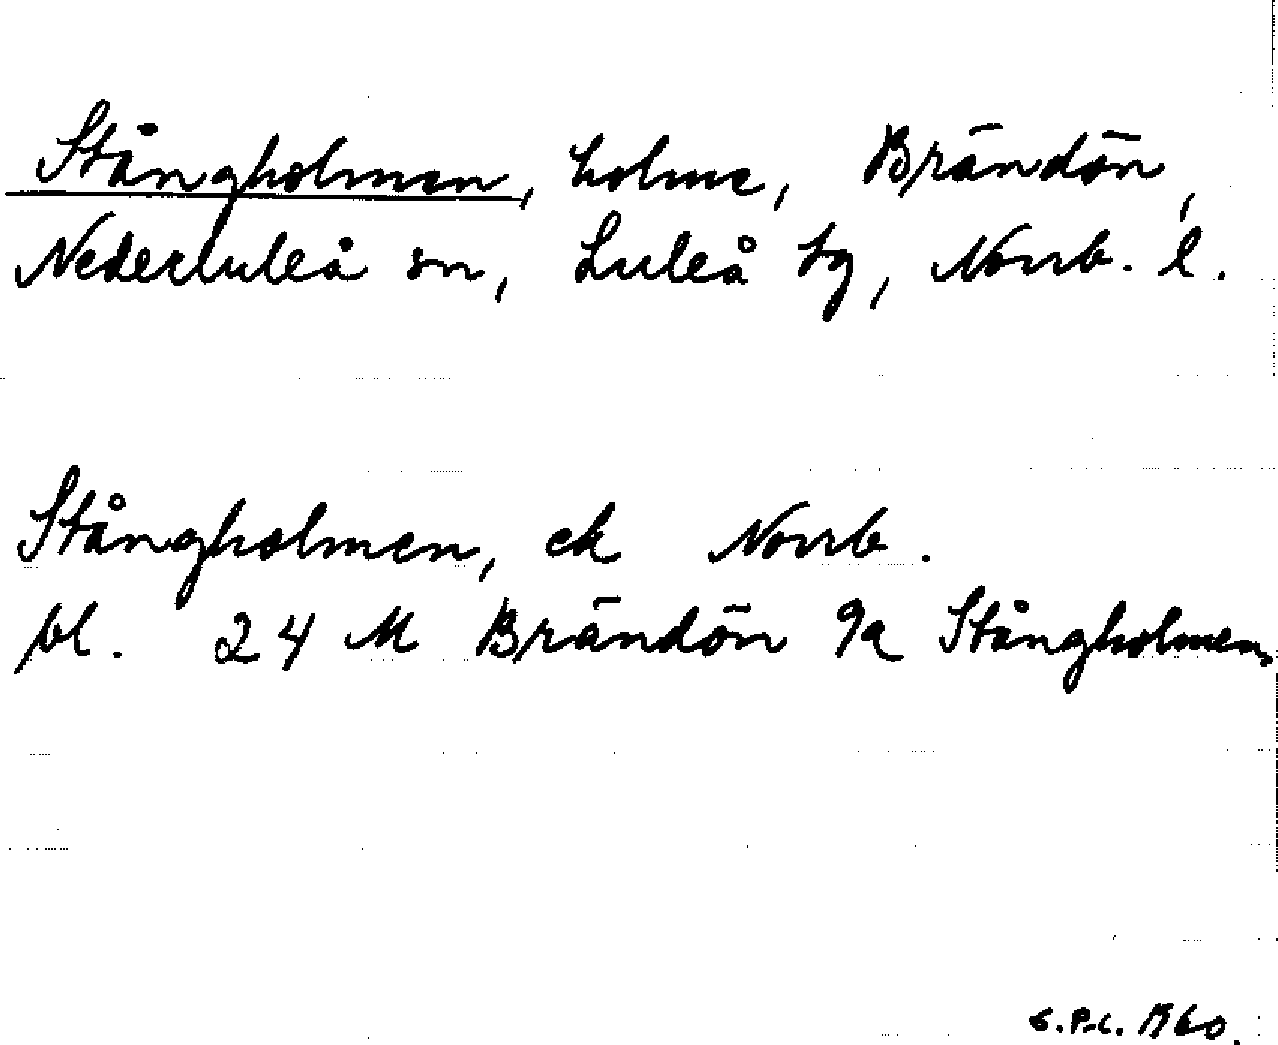 Stångholmen, holme, Brändön,
Nederluleå sn, Luleå tg, Norrb. l.
Stångholmen, ek Norrb.
bl. 24 M Brändön 9a Stångholmen
1960.